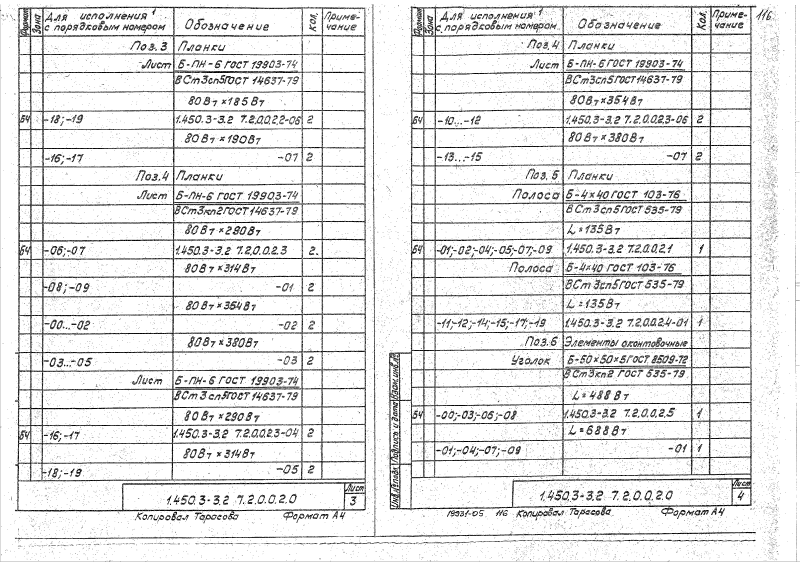 Формат Зона Для исполнения 1 с порядковым номером Обозначение Кол. Примечание
Поз.3 Планки
Лист Б-ПН-6 ГОСТ 19903-74
ВСт3сп5ГОСТ 14637-79
80Вт×185Вт
БЧ -18;-19 1.450.3-3.2 7.2.0.0.2.2-06 2
80Вт×190Вт
-16;-17 -07 2
Поз.4 Планки
Лист Б-ПН-6 ГОСТ 19903-74
ВСт3кп2ГОСТ14637-79
80Вт×290Вт
БЧ -06;-07 1.450.3-3.2 7.2.0.0.2.3 2.
80Вт×314Вт
-08;-09 -01 2
80Вт×354Вт
-00...-02 -02 2
80Вт×380Вт
-03...-05 -03 2
Лист Б-ПН-6 ГОСТ 19903-74
ВСт3сп5ГОСТ14637-79
80Вт×290Вт
БЧ -16;-17 1.450.3-3.2 7.2.0.0.2.3-04 2
80Вт×314Вт
-18;-19 -05 2
1.450.3-3.2 7.2.0.0.2.0 Лист 3
Копировал Тарасова Формат А4
116
Формат Зона Для исполнения 1 с порядковым номером Обозначение Кол. Примечание
Поз.4 Планки
Лист Б-ПН-6ГОСТ 19903-74
ВСт3сп5ГОСТ14637-79
80Вт×354Вт
БЧ -10...-12 1.450.3-3.2 7.2.0.0.2.3-06 2
80Вт×380Вт
-13...-15 -07 2
Поз.5 Планки
Полоса Б-4×40 ГОСТ 103-76
ВСт3сп5ГОСТ535-79
L=135Вт
БЧ -01;-02;-04;-05;-07;-09 1.450.3-3.2 7.2.0.0.2.1 1
Полоса Б-4×40 ГОСТ 103-76
ВСт3сп5ГОСТ 535-79
L=135Вт
-11;-12;-14;-15;-17;-19 1.450.3-3.2 7.2.0.0.2.4-01 1
Поз.6 Элементы оконтовочные
Уголок Б-50×50×5ГОСТ 8509-72
ВСт3кп2 ГОСТ 535-79
L=488Вт
БЧ -00;-03;-06;-08 1.450.3-3.2 7.2.0.0.2.5 1
L=688Вт
-01;-04;-07;-09 -01 1
Инв.№подл. Подпись и дата Взам.инв.№
1.450.3-3.2 7.2.0.0.2.0 Лист 4
19931-05 116 Копировал Тарасова Формат А4